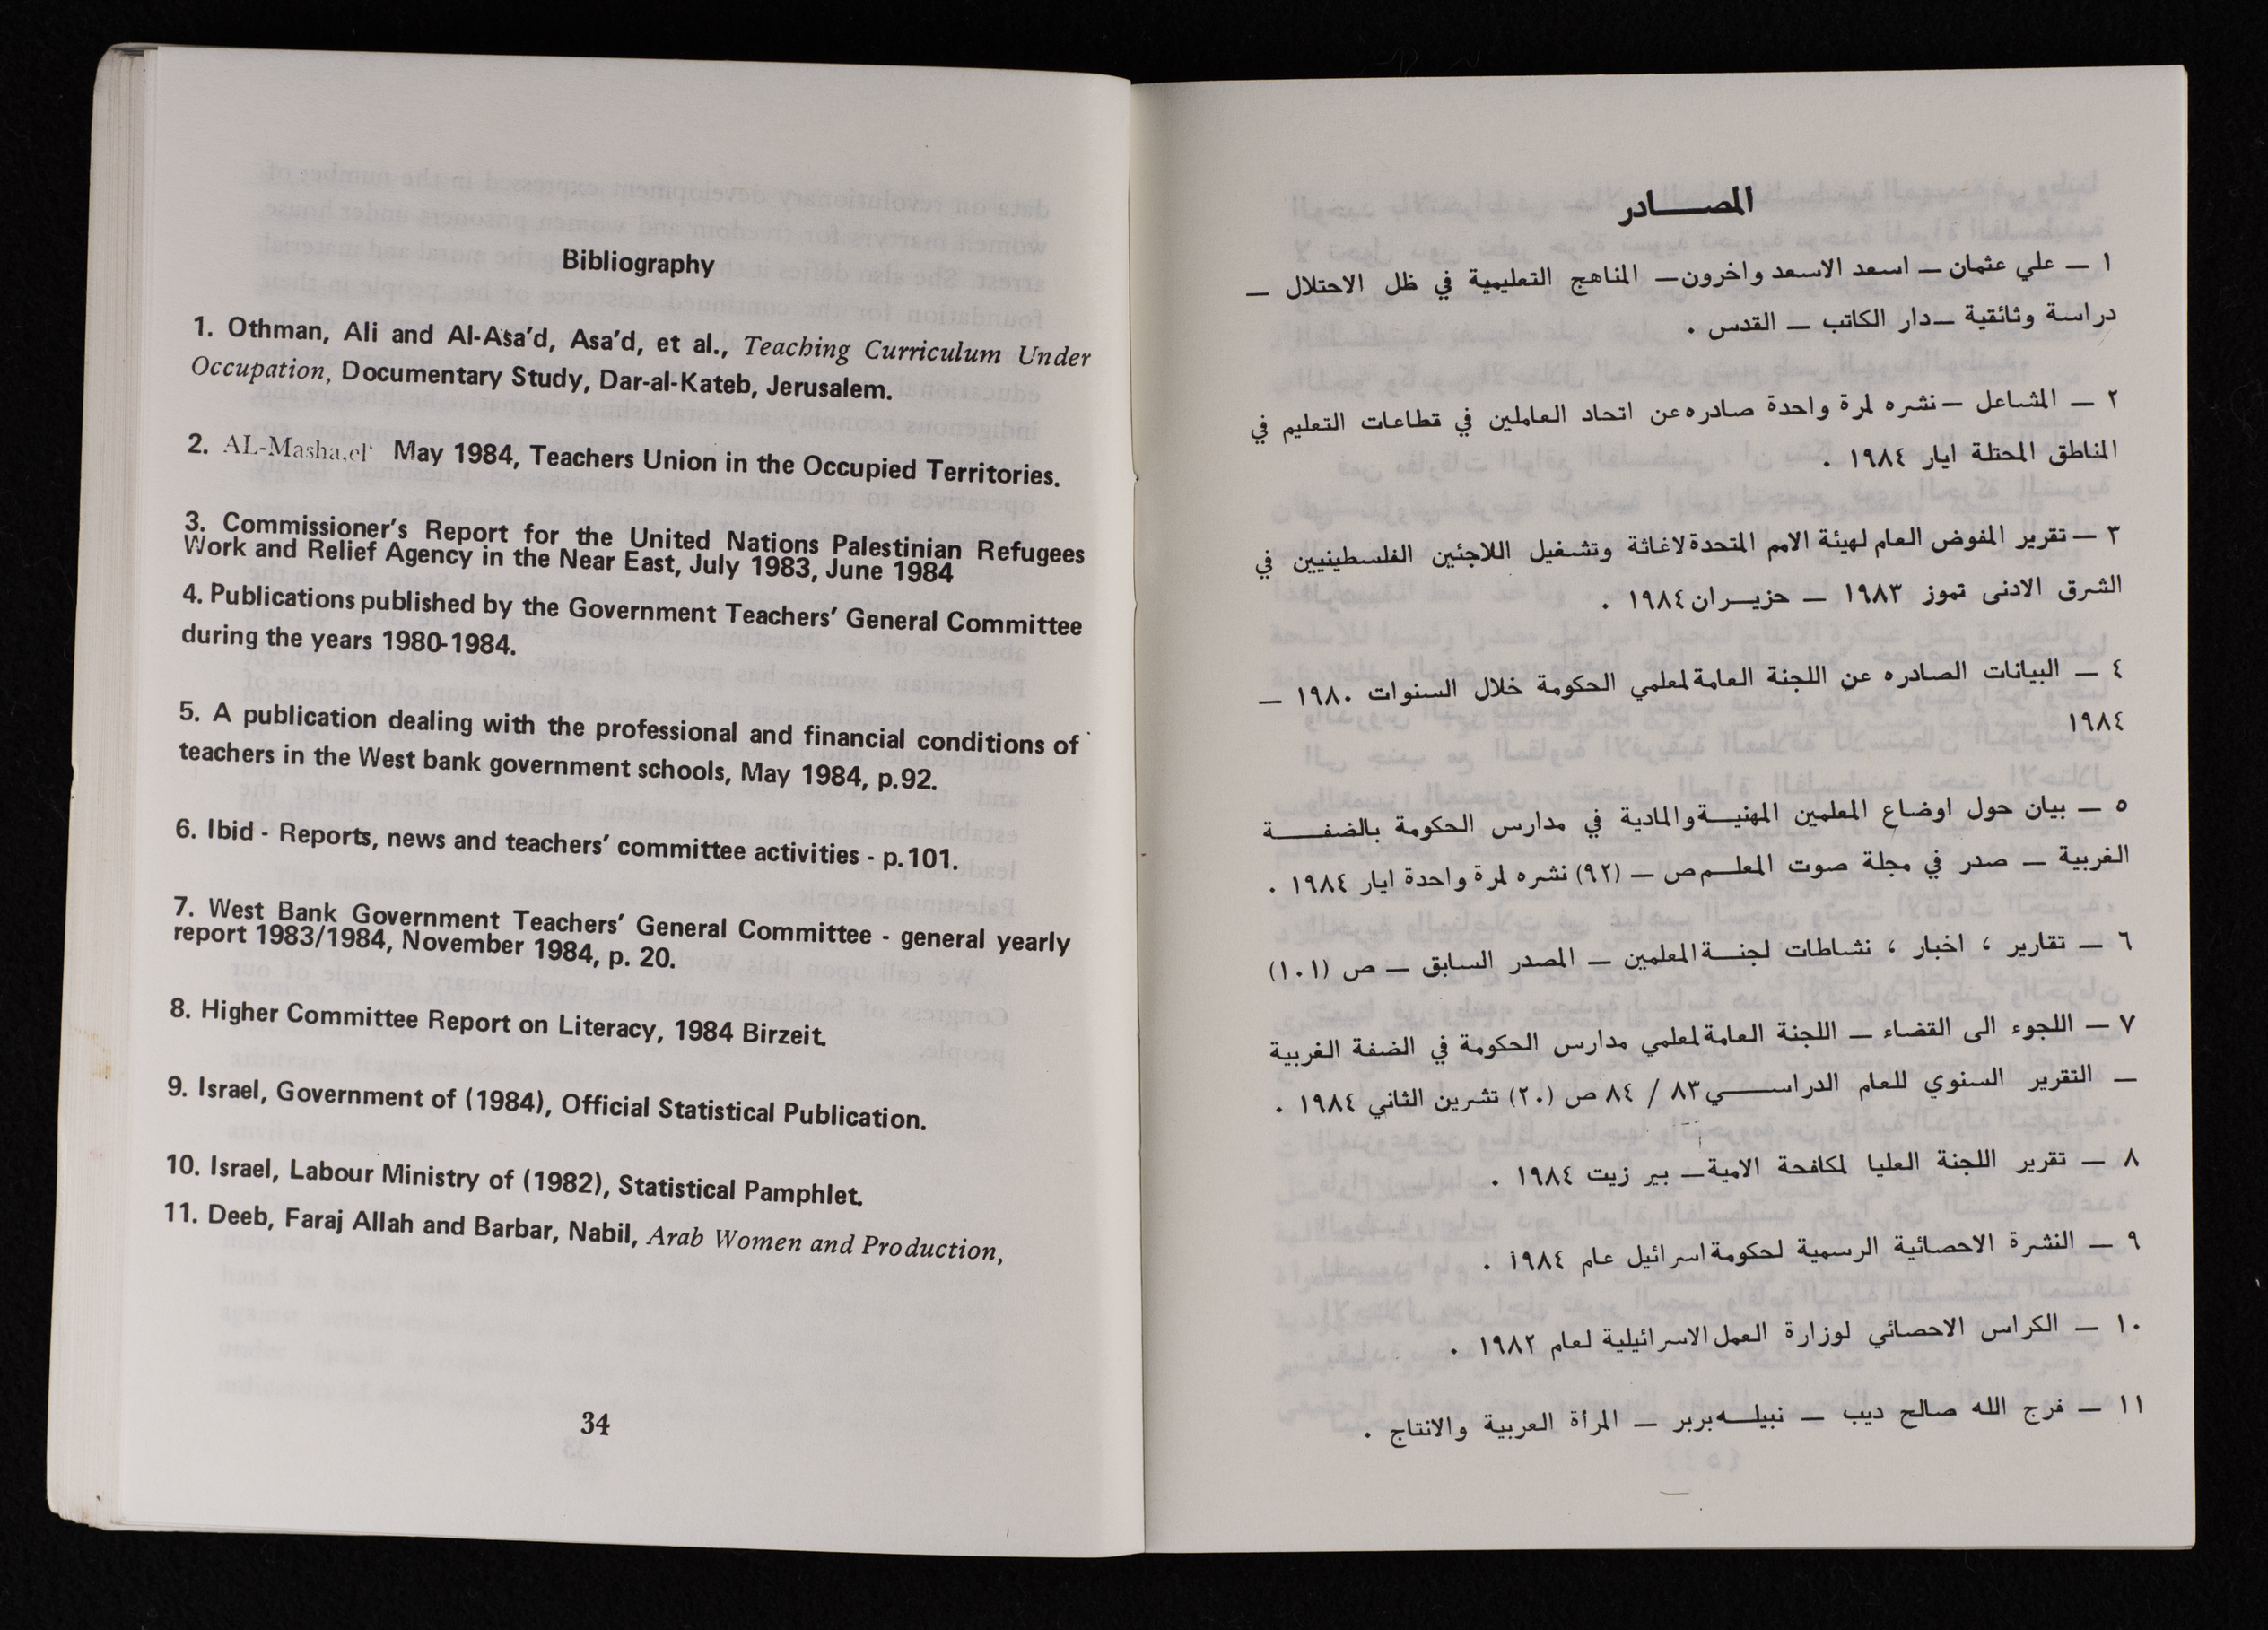 Bibliography
1. Othman, Ali and Al-Asa'd, Asa'd, et al., Teaching Curriculum Under
Occupation, Documentary Study, Dar-al-Kateb, Jerusalem.
2. AL-Masha,el' May 1984, Teachers Union in the Occupied Territories.
3. Commissioner's Report for the United Nations Palestinian Refugees
Work and Relief Agency in the Near East, July 1983, June 1984
4. Publications published by the Government Teachers' General Committee
during the years 1980-1984.
5. A publication dealing with the professional and financial conditions of
teachers in the West bank government schools, May 1984, p.92.
6. Ibid - Reports, news and teachers' committee activities - p.101.
7. West Bank Government Teachers' General Committee - general yearly
report 1983/1984, November 1984, p. 20.
8. Higher Committee Report on Literacy, 1984 Birzeit.
9. Israel, Government of (1984), Official Statistical Publication.
10. Israel, Labour Ministry of (1982), Statistical Pamphlet.
11. Deeb, Faraj Allah and Barbar, Nabil, Arab Women and Production,
34
المصــــادر
١ — علي عثمان — اسعد الاسعد واخرون— المناهج التعليمية في ظل الاحتلال —
دراسة وثائقية —دار الكاتب — القدس .
٢ — المشاعل —نشره لمرة واحدة صادره عن اتحاد العاملين في قطاعات التعليم في
المناطق المحتلة ايار ١٩٨٤ .
٣ — تقرير المفوض العام لهيئة الامم المتحدة لاغاثة وتشغيل اللاجئين الفلسطينيين في
الشرق الادنى تموز ١٩٨٣ — حزيـــران ١٩٨٤ .
٤ — البيانات الصادره عن اللجنة العامة لمعلمي الحكومة خلال السنوات ١٩٨٠ —
١٩٨٤
٥ — بيان حول اوضاع المعلمين المهنيـــة والمادية في مدارس الحكومة بالضفــــة
الغربية — صدر في مجلة صوت المعلـــم ص — (٩٢) نشره لمرة واحدة ايار ١٩٨٤ .
٦ — تقارير ، اخبار ، نشاطات لجنـــة المعلمين — المصدر السابق — ص (١٠١)
٧ — اللجوء الى القضاء — اللجنة العامة لمعلمي مدارس الحكومة في الضفة الغربية
— التقرير السنوي للعام الدراســـــي ٨٣ / ٨٤ ص (٢٠) تشرين الثاني ١٩٨٤ .
٨ — تقرير اللجنة العليا لمكافحة الامية— بير زيت ١٩٨٤ .
٩ — النشرة الاحصائية الرسمية لحكومة اسرائيل عام ١٩٨٤ .
١٠ — الكراس الاحصائي لوزارة العمل الاسرائيلية لعام ١٩٨٢ .
١١ — فرج الله صالح ديب — نبيلـــه بربر — المرأة العربية والانتاج .